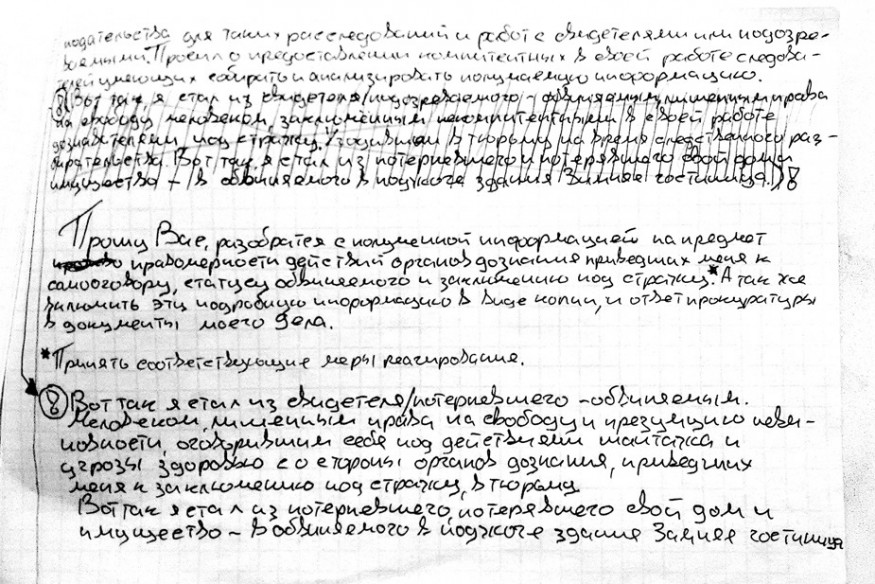 подательства для таких расследований и работ с свидетелями или подозре-
ваемыми. Просил о предоставлении компитентных в своей работе следова-
телей умеющих собирать и анализировать получаемую информацию.
(8) Вот так, я стал из свидетеля/подозреваемого - обвиняемым, лишенным права
на свободу человеком, заключённым некомпитентными в своей работе
дознавателями под стражу, в тюрьму на время следственного раз-
бирательства. Вот так, я стал из потерпевшего и потерявшего свой дом и
имущество - в обвиняемого в поджоге здания Зимняя гостиница.) 8
Прошу Вас, разобратся с полученной информацией на предмет
правомерности действий органов дознания приведших меня к
самооговору, статусу обвиняемого и заключению под стражу.* А так же
включить эту подробную информацию в виде копии, и ответ прокуратуры
в документы моего дела.
*Принять соответствующие меры реагирования.
(8) Вот так я стал из свидетеля/потерпевшего - обвиняемым.
Человеком, лишенным права на свободу и презумцию неви-
новности, оговорившим себя под действием шантажа и
угрозы здоровью со стороны органов дознания, приведших
меня к заключению под стражу, в тюрьму
Вот так я стал из потерпевшего, потерявшего свой дом и
имущество - в обвиняемого в поджоге здания Зимняя гостиница